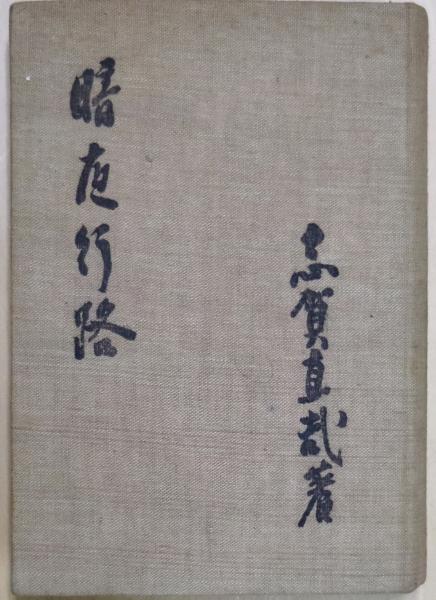 暗夜行路
志賀直哉著